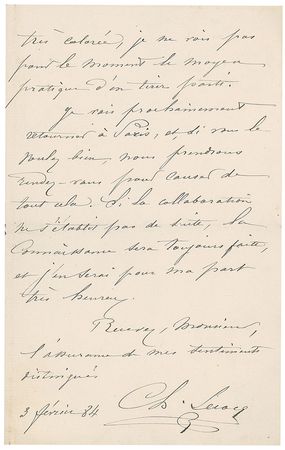 très colorée, je ne vois pas
pour le moment le moyen
pratique d'en tirer parti.
Je vais prochainement
retourner à Paris, et, si vous le
voulez bien, nous prendrons
rendez-vous pour causer de
tout cela. Si la collaboration
ne s'établit pas de suite, la
connaissance sera toujours faite,
et j'en serai pour ma part
très heureux.
Recevez, Monsieur,
l'assurance de mes sentiments
distingués
3 février 84
Ch. Lecocq